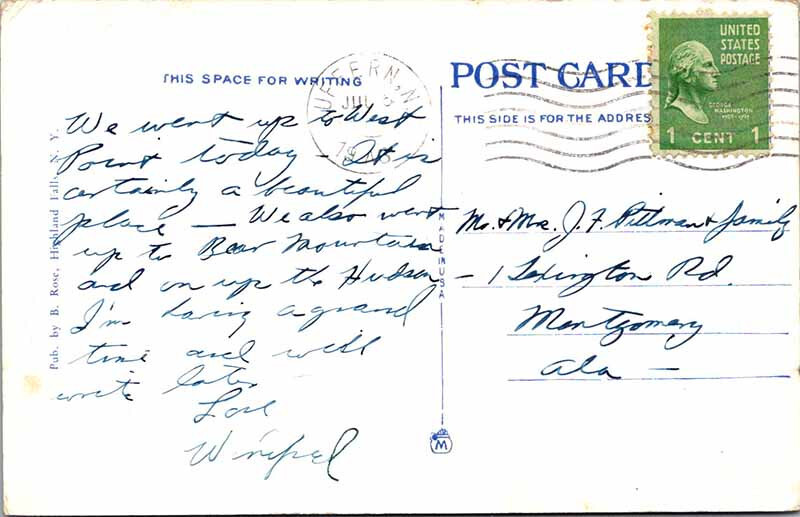 THIS SPACE FOR WRITING
We went up to West
Point today — It is
certainly a beautiful
place — We also went
up to Bear Mountain
and on up the Hudson
I'm having a grand
time and will
write later
Love
Pub. by B. Rose, Highland Falls, N. Y.
MADE IN USA
M
POST CARD
THIS SIDE IS FOR THE ADDRES
UNITED
STATES
POSTAGE
GEORGE
WASHINGTON
1 CENT 1
SUFFERN, N.
JUL
Mr. & Mrs. J. F. Pittman & family
— 1 Lexington Rd.
Montgomery
Ala —